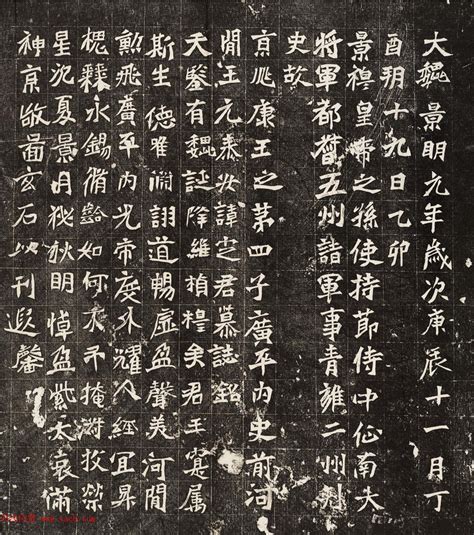 大魏景明元年歲次庚辰十一月丁
酉朔十九日乙卯
景穆皇帝之孫使持節侍中征南大
將軍都督五州諸軍事青雍二州刾
史故
京兆康王之第四子廣平內史前河
間王元泰安諱定君墓誌銘
天鑒有魏誕降維楨穆矣君王寔属
斯生德唯淵詡道暢虛盈聲美河間
勳飛廣平內光帝度外耀八經宜昇
槐棘永錫脩齡如何不掩澍攸榮
星沉夏景月狄秋明悼盈紫太哀滿
神京敬啚玄石以刊遐馨